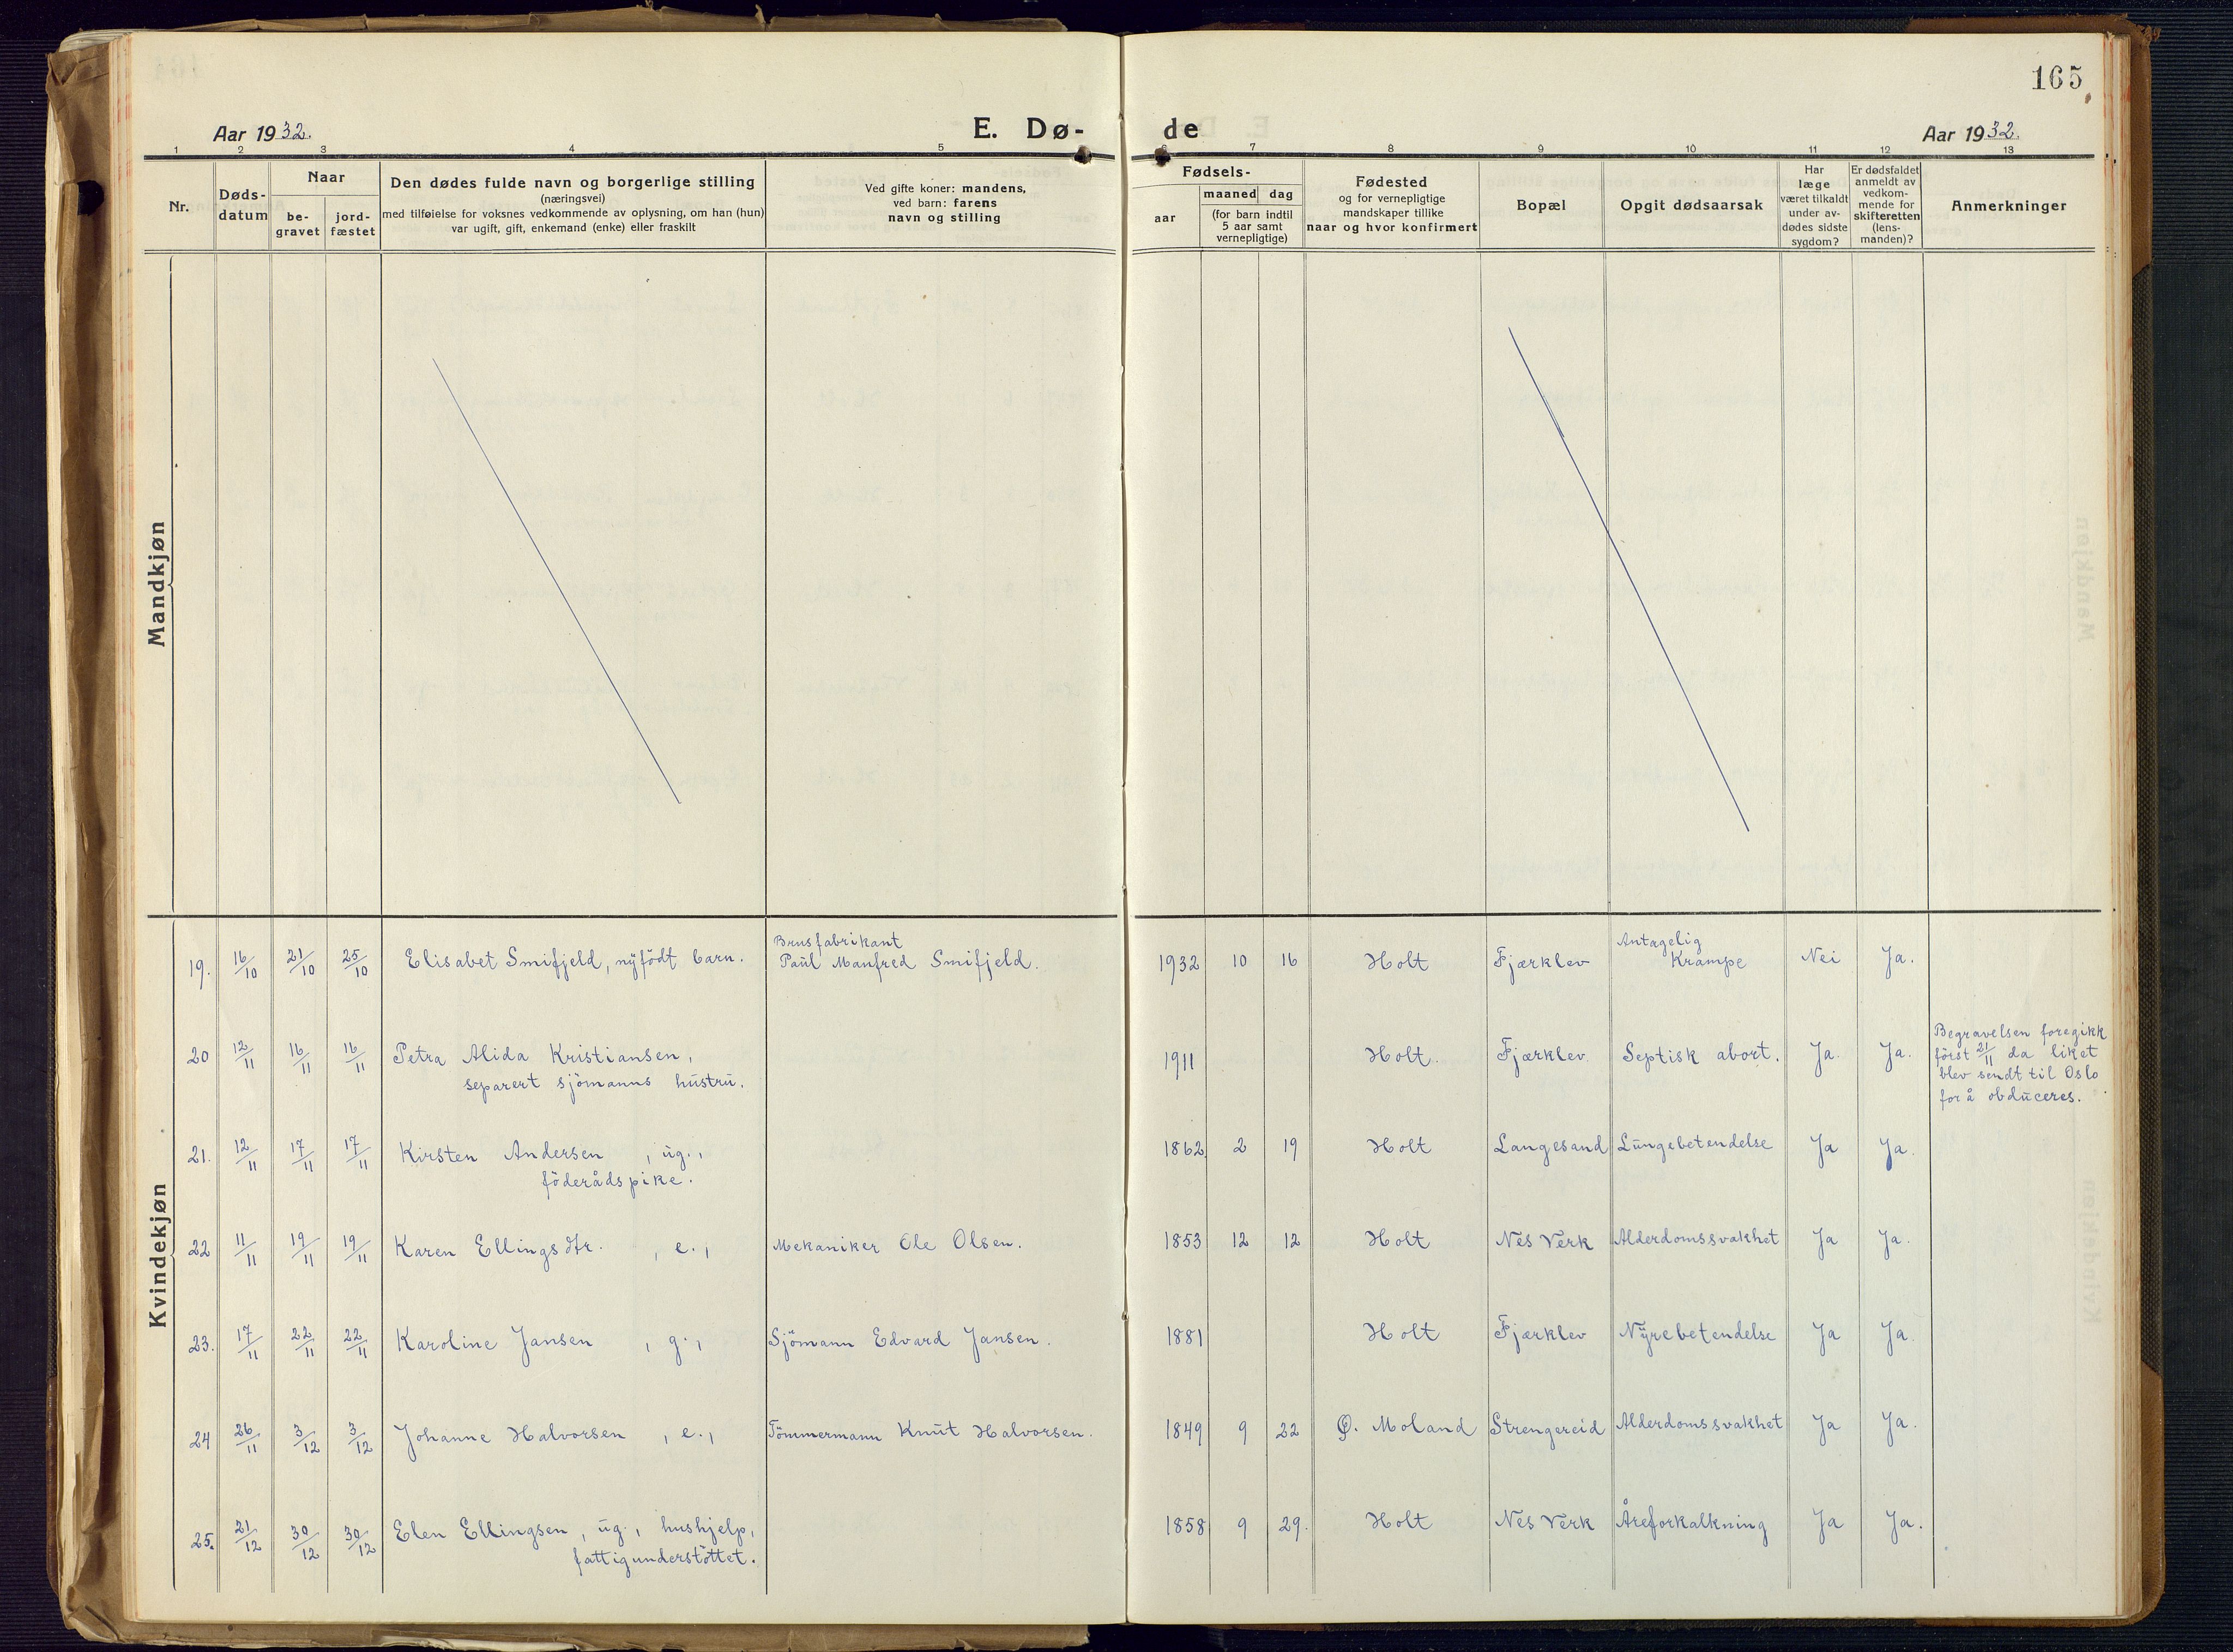 165
Aar 1932.
E. Dø-
de
Aar 1932.
1 2 3 4 5 6 7 8 9 10 11 12 13
Nr.
Døds-
datum
Naar
be-
gravet
jord-
fæstet
Den dødes fulde navn og borgerlige stilling
(næringsvei)
med tilføielse for voksnes vedkommende av oplysning, om han (hun)
var ugift, gift, enkemand (enke) eller fraskilt
Ved gifte koner: mandens,
ved barn: farens
navn og stilling
Fødsels-
aar
maaned dag
(for barn indtil
5 aar samt
vernepligtige)
Fødested
og for vernepligtige
mandskaper tillike
naar og hvor konfirmert
Bopæl
Opgit dødsaarsak
Har
læge
været tilkaldt
under av-
dødes sidste
sygdom?
Er dødsfaldet
anmeldt av
vedkom-
mende for
skifteretten
(lens-
manden)?
Anmerkninger
Mandkjøn
Kvindekjøn
19. 16/10 21/10 25/10 Elisabet Smifjeld, nyfödt barn. Brusfabrikant
Paul Manfred Smifjeld. 1932 10 16 Holt Fjærklev Antagelig
Krampe Nei Ja.
20 12/11 16/11 16/11 Petra Alida Kristiansen,
separert sjömanns hustru. 1911 Holt. Fjærklev Septisk abort. Ja. Ja. Begravelsen foregikk
först 21/11 da liket
blev sendt til Oslo
for å obduceres.
21. 12/11 17/11 17/11 Kirsten Andersen, ug.,
föderådspike. 1862 2 19 Holt Langesand Lungebetendelse Ja Ja.
22 11/11 19/11 19/11 Karen Ellingsdtr., e., Mekaniker Ole Olsen. 1853 12 12 Holt Nes Verk Alderdomssvakhet Ja Ja.
23. 17/11 22/11 22/11 Karoline Jansen, g., Sjömann Edvard Jansen. 1881 Holt Fjærklev Nyrebetendelse Ja Ja.
24 26/11 3/12 3/12 Johanne Halvorsen, e., Tömmermann Knut Halvorsen. 1849 9 22 Ø. Moland Strengereid Alderdomssvakhet Ja Ja.
25. 21/12 30/12 30/12 Elen Ellingsen, ug., hushjelp,
fattigunderstöttet. 1858 9 29. Holt Nes Verk Åreforkalkning Ja Ja.